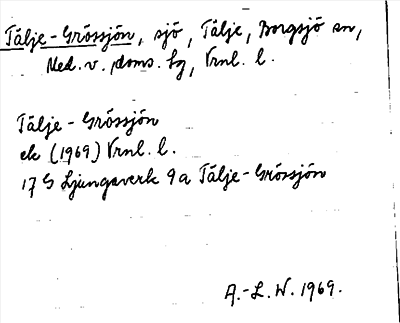 Tälje-Grössjön, sjö, Tälje, Borgsjö sn,
Med. v. doms. tg, Vrnl. l.
Tälje-Grössjön
ek (1969) Vrnl. l.
17 G Ljungaverk 9a Tälje-Grössjön
A.-L. W. 1969.